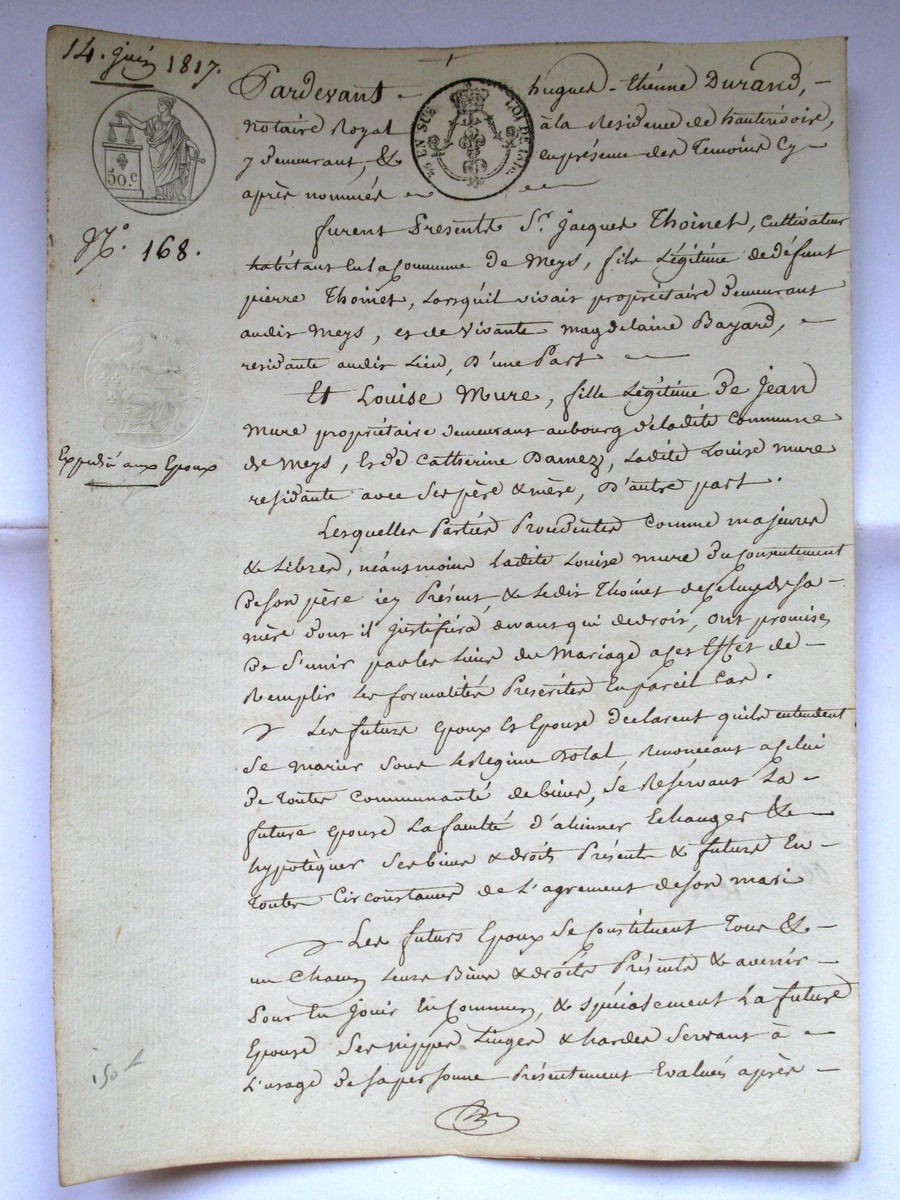 14. juin 1817.
Pardevant hugues-étienne Durand,
notaire Royal à la Residence de hauterivoire,
y demeurant, & en présence des Temoins Cy
après nommés
50.c
EN SUS LOI DE 1816
N.° 168.
furent Presents S.r Jacques Thoinet, Cultivateur
habitant En la Commune de Meys, fils Légitime de défunt
pierre Thoinet, Lorsquil vivait propriétaire demeurant
audit Meys, et de vivante magdelaine Bayard,
residante audit Lieu, D'une Part
Et Louise Mure, fille Légitime de Jean
Mure propriétaire demeurant au bourg de ladite Commune
de Meys, Et de Catherine Ladite Louise mure
residante avec Ses père & mère, D'autre part.
Expedié aux Epoux
Lesquelles Parties Procedentes Comme majeures
& Libres, néansmoins Ladite Louise mure du Consentement
de Son père icy Présent, & Ledit Thoinet de Celuy de Sa
mère dont il justifiera devant qui de droit, ont promis
De S'unir par les Liens du Mariage a Cet Effet de
Remplir Les formalités Prescrites En pareil Cas.
Les future Epoux Et Epouse déclarent quils entendent
Se marier Sous Le Régime Dotal, Renonceant a Celui
de toutes Communauté de biens, Se Réservant La
future épouse La faculté d'alienner Echanger &
hypotèquer Ses biens & droits Présents & future En
toutes Circonstances de L'agrement de Son mari
Les futurs Epoux Se Constituent Tous &
un Chacun Leurs Biens & droits Présents & avenir
Pour En Jouir En Commun, & Spécialement La future
Epouse Ses nippes Linges & hardes Servant à
L'usage de Sa personne Présentement Evalués après
150 #